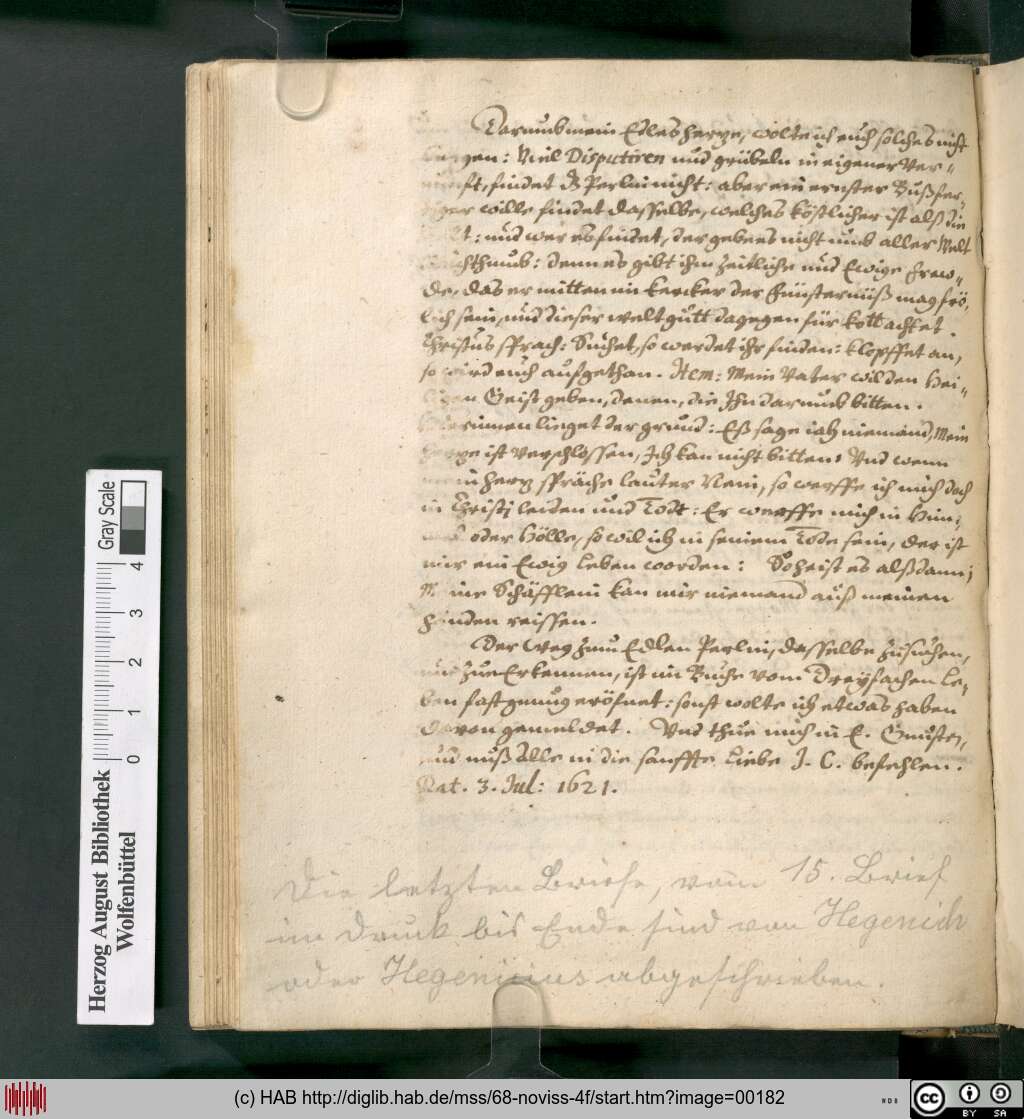 Darumb mein Edles hertze, wolte ich euch solches nicht
bergen: Viel Disputiren und grübeln in eigener Ver-
nunft, findet dz Perlin nicht: aber ein ernster Bußfer-
tiger wille findet dasselbe, welches köstlicher ist alß die
Welt: und wer es findet, der gebe es nicht umb aller Welt
Reichthumb: denn es gibt ihm zeitliche und Ewige frew-
de, das er mitten im kercker der finsternüß mag frö-
lich sein, und dieser welt gutt dagegen für kott achtet.
Christus sprach: Suchet, so werdet ihr finden: klopffet an,
so wird euch aufgethan. Item: Mein Vater wil den Hei-
ligen Geist geben, denen, die Ihn darumb bitten.
Hierinnen lieget der grund: Eß sage iah niemand, Mein
hertze ist verschlossen, Ich kan nicht bitten, Und wenn
mein hertz spräche lauter Nein, so werffe ich mich doch
in Christi leiden und Todt: Er werffe mich in Him-
mel oder Hölle, so wil ich in seinem Tode sein, der ist
mir ein Ewig leben worden: So heist es alßdann;
Meine Schäfflein kan mir niemand auß meinen
händen reissen.
Der Weg zum Edlen Perlin, dasselbe zusuchen,
und zue Erkennen, ist im Buche vom Dreyfachen Le-
ben fast genug eröfnet: sonst wolte ich etwas haben
davon gemeldet. Und thue mich in E. Gunsten,
und unß alle in die sanffte Liebe J. C. befehlen.
Dat. 3. Jul: 1621.
Die letzten Briefe, vom 15. Brief
im Druck bis Ende sind von Hegenich
oder Hegenicius abgeschrieben.
Herzog August Bibliothek
Wolfenbüttel
0 1 2 3 4
Gray Scale
(c) HAB http://diglib.hab.de/mss/68-noviss-4f/start.htm?image=00182
WDB
cc BY SA